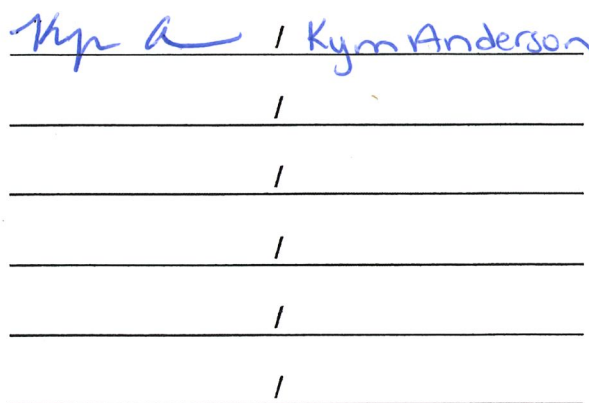 Kym A / Kym Anderson
/
/
/
/
/